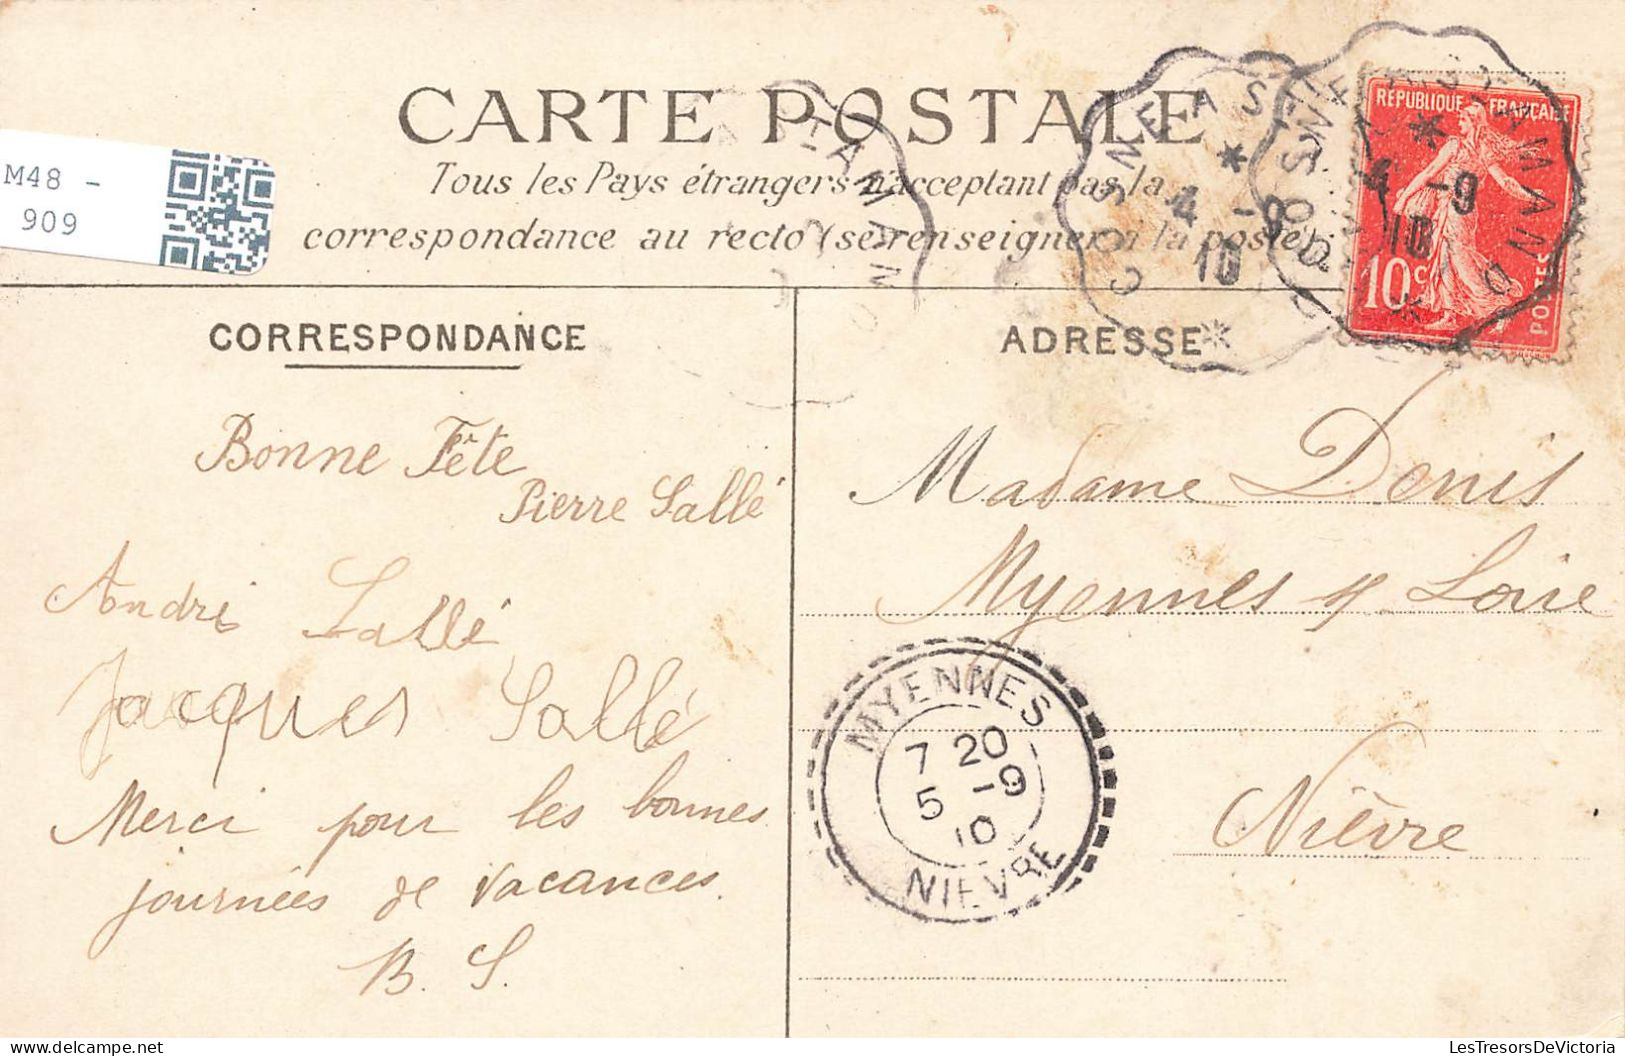 CARTE POSTALE
Tous les Pays étrangers n'acceptent pas la
correspondance au recto (se renseigner à la poste)
M48 -
909
COSNE A S
* 4 -9
10
*
4 -9
10
RÉPUBLIQUE FRANÇAISE
10c
POSTES
CORRESPONDANCE
ADRESSE
Bonne Fête
Pierre Sallé
André Sallé
Jacques Sallé
Merci pour les bonnes
journées de vacances.
B. S.
Madame Denis
Myennes s/ Loire
Nièvre
MYENNES
7 20
5 -9
10
NIEVRE
LesTresorsDeVictoria